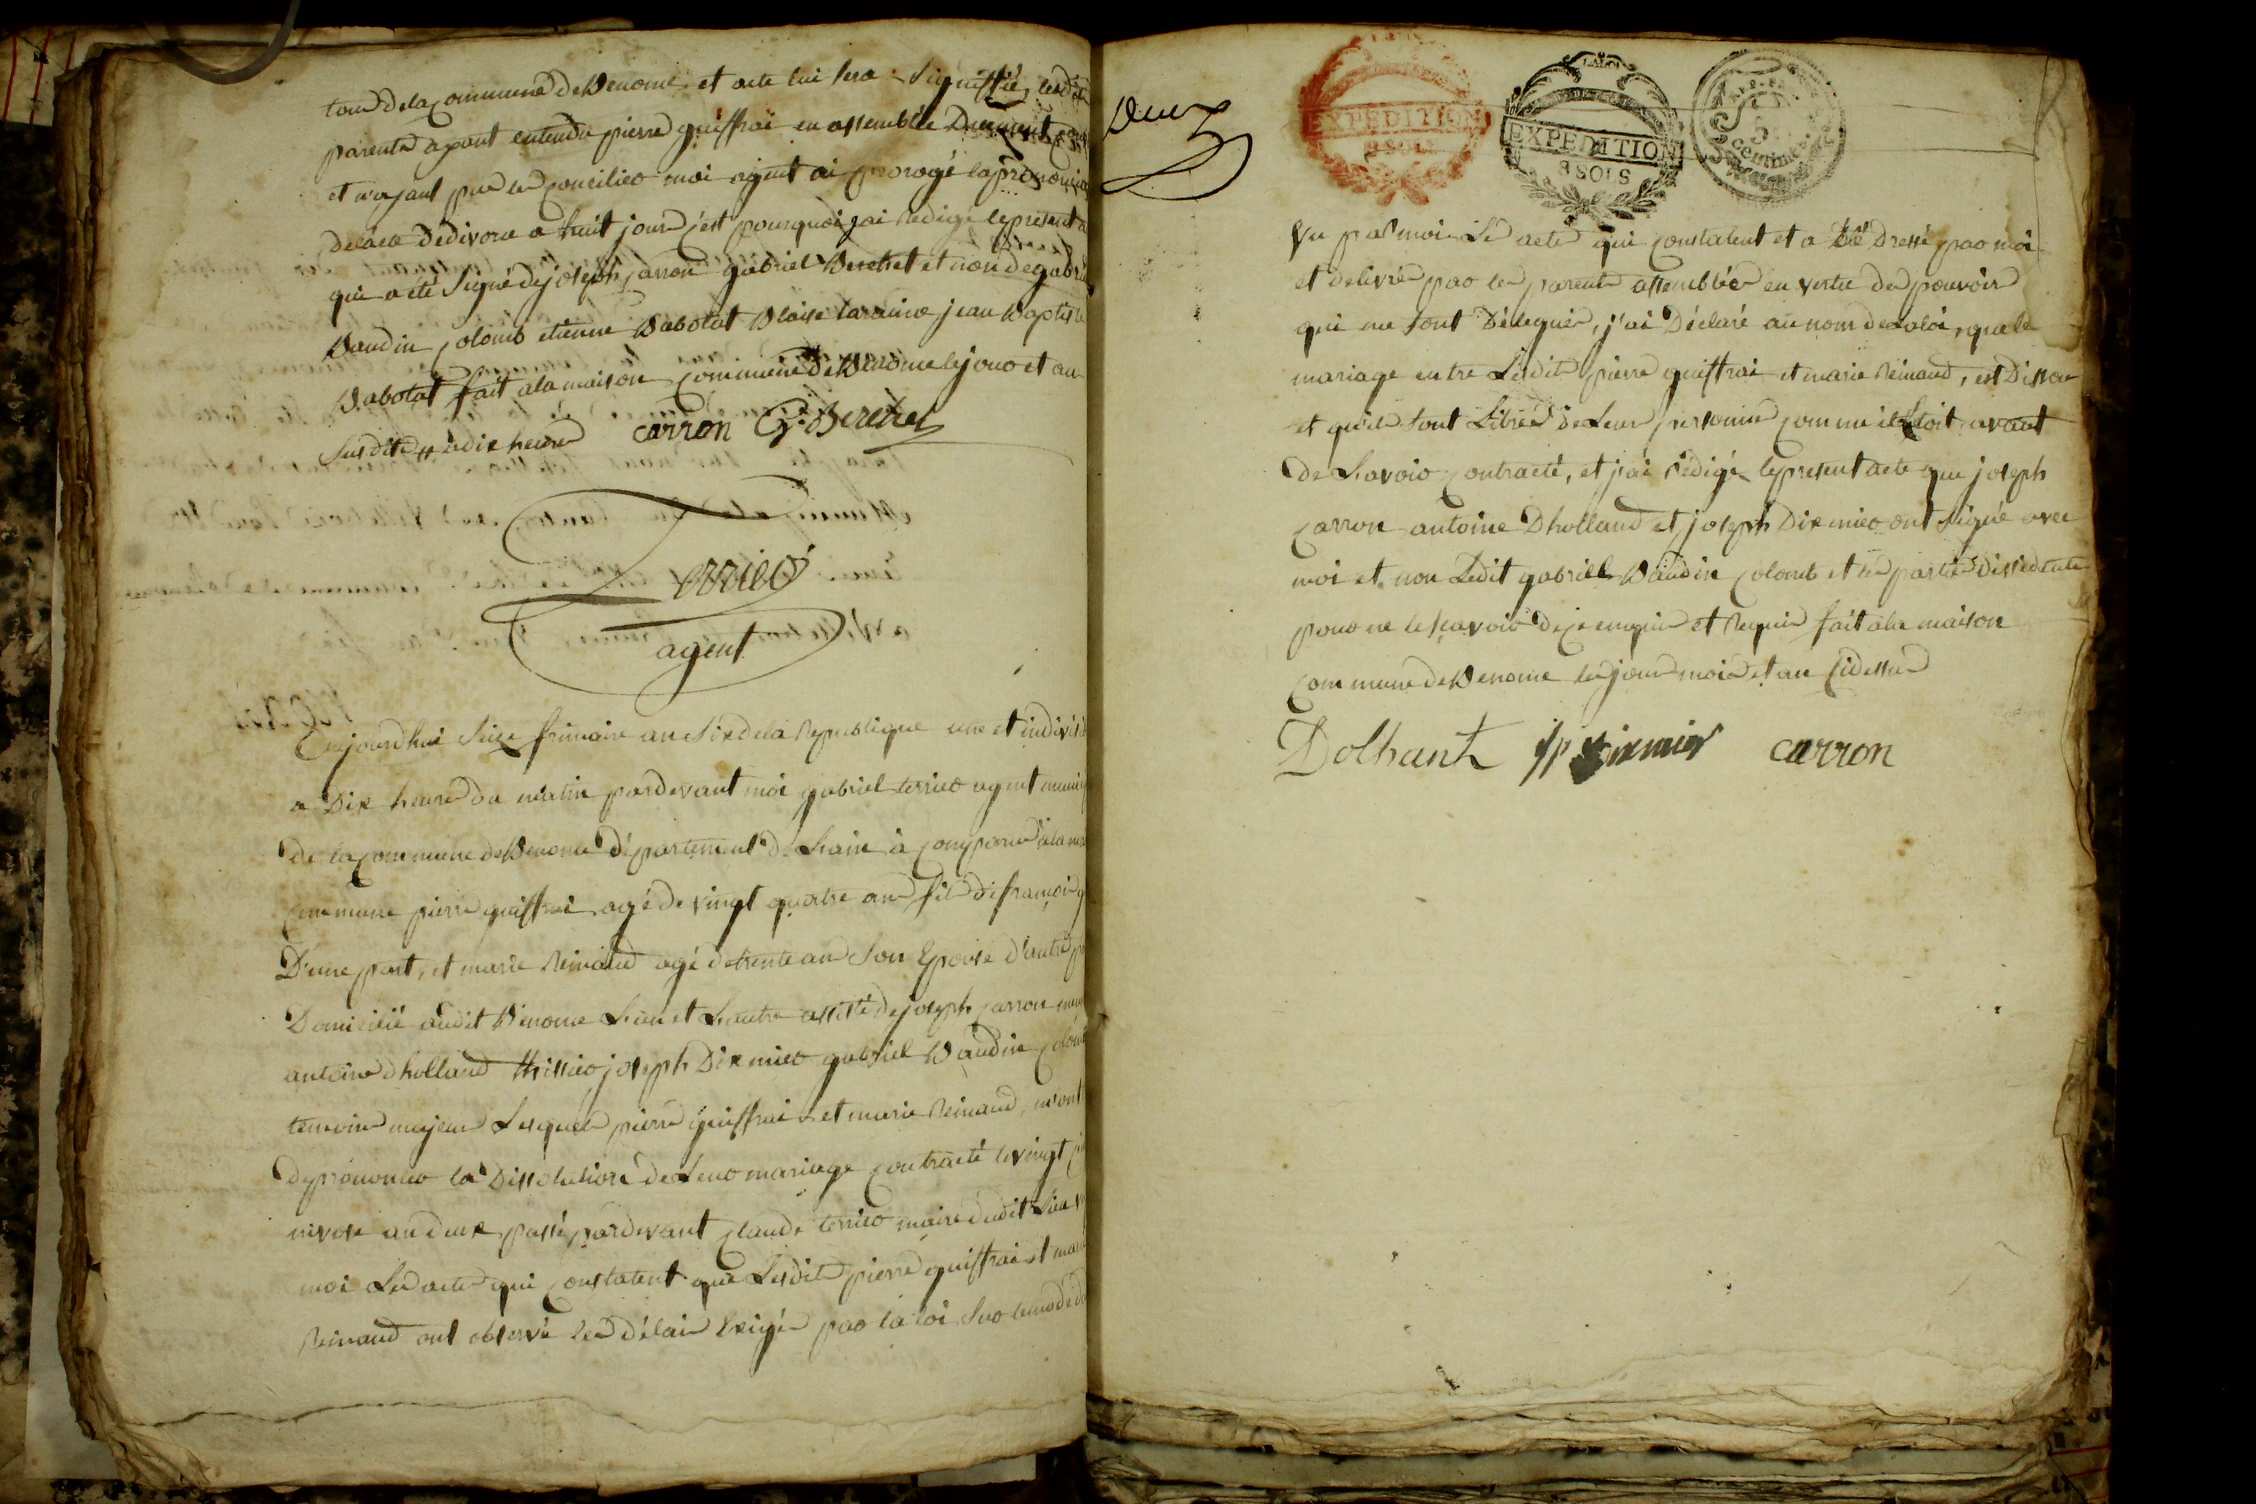 tous de la commune de Benome et acte lui sera signiffié, lesdits
parents ayant entendu pierre guiffrai en assemblée
et n'ayant pu les concilier moi agent ai prorogé la prononcia
de l'acte de divorce a huit jours c'est pourquoi jai redigé le present a
qui a été signé de joseph carron gabriel Beretret et non de gabriel
Baudin colomb etienne Babolat Blaise laraine jean Baptiste
Babolat fait a la maison commune de Benome le jour et an
susdits a dix heures carron G. Beretret
Terrier
agent
Aujourdhui seize frimaire an six de la Republique une et indivisi
a Dix heures du matin pardevant moi gabriel terrier agent munici
de la commune de Benome département de Lain à comparu a la mai
commune pierre guiffrai agé de vingt quatre ans fils de françois g
D'une part, et marie Reinaud agé de trente ans son Epouse d'autre p
Domicilié audit Benome L'un et L'autre assisté de joseph carron
antoine dholland tissier joseph Dixmier gabriel Baudin colomb
temoins majeurs Lesquels pierre guiffrai et marie Reinaud, m'ont
de prononcer la Dissolution de Leur mariage contracté le vingt
nivose an deux passé pardevant claude terrier maire dudit Lieu v
moi Les actes qui constatent que Lesdits pierre guiffrai et marie
Reinaud ont observé les délais Exigés par la loi sur le mode de d
Deux
EXPEDITION
8 SOLS
LA LOI
EXPEDITION
8 SOLS
REP. FRA.
5
centimes
Vu par moi Les actes qui constatent et a été Dressé par moi
et delivrés par les parents assemblés en vertu des pouvoirs
qui me sont Délegués, j'ai Déclaré au nom de La loi, que le
mariage entre Lesdits pierre guiffrai et marie Reinaud, est Dissou
et quils sont Libres de Leur personne comme ils Etoit avant
de L'avoir contracté, et j'ai rédigé le present acte que joseph
carron antoine Dholland et joseph Dixmier ont signé avec
moi et non Ledit gabriel Baudin colomb et les parties
pour ne le sçavoir de ce enquis et requis fait a la maison
commune de Benome les jour mois et an cidessus
Dolhant jp Dixmier carron